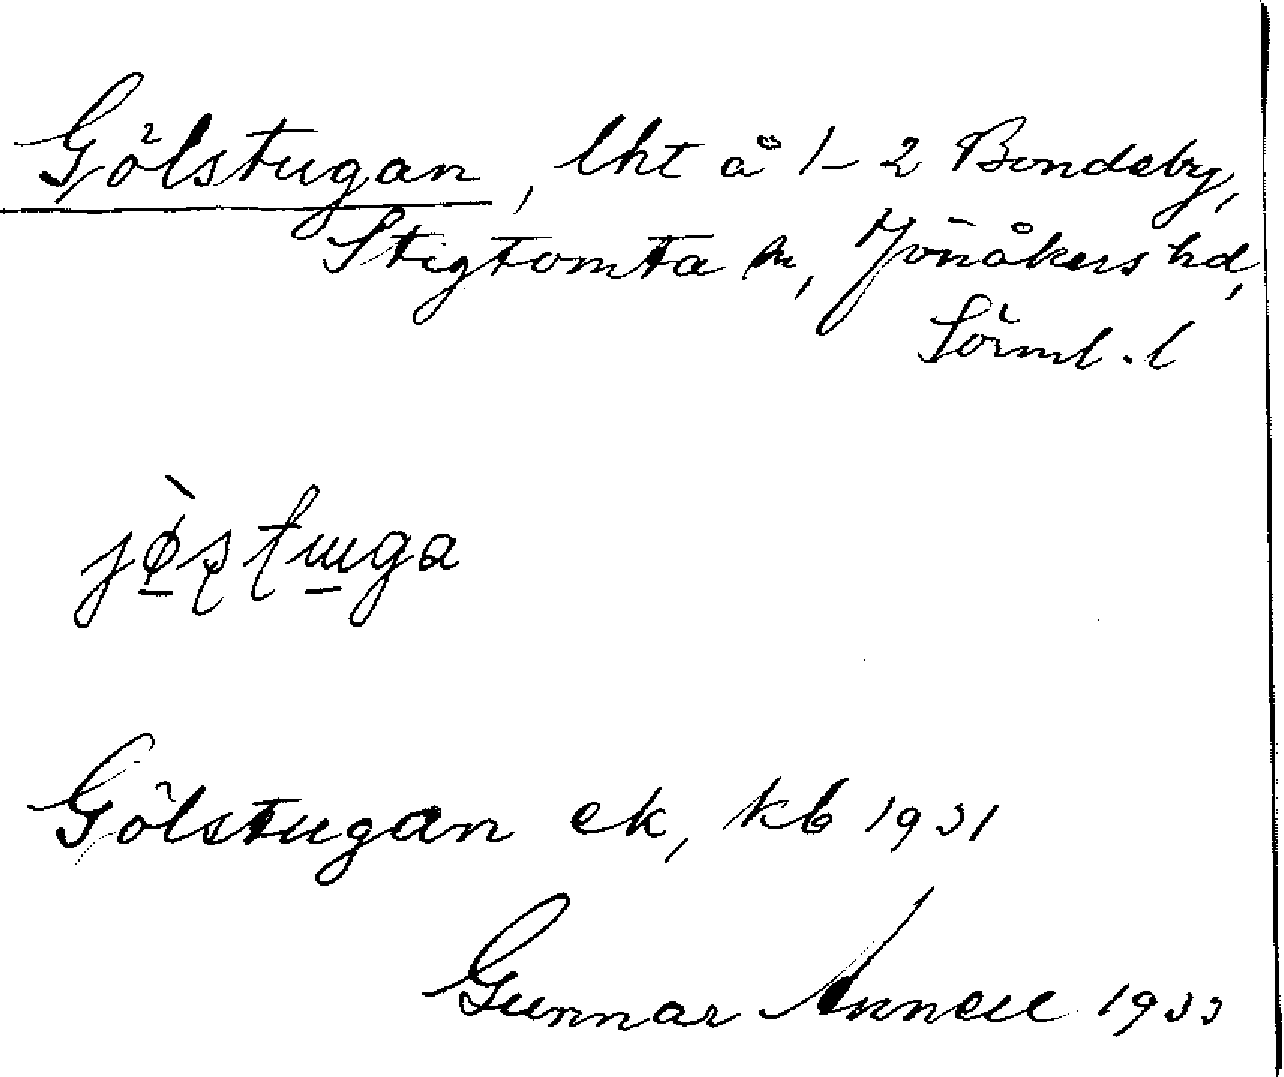 Gölstugan, lht å 1–2 Bondeby,
Stigtomta sn, Jönåkers hd,
Sörml. l
Gölstugan ek, kb 1931
Gunnar Annell 1933